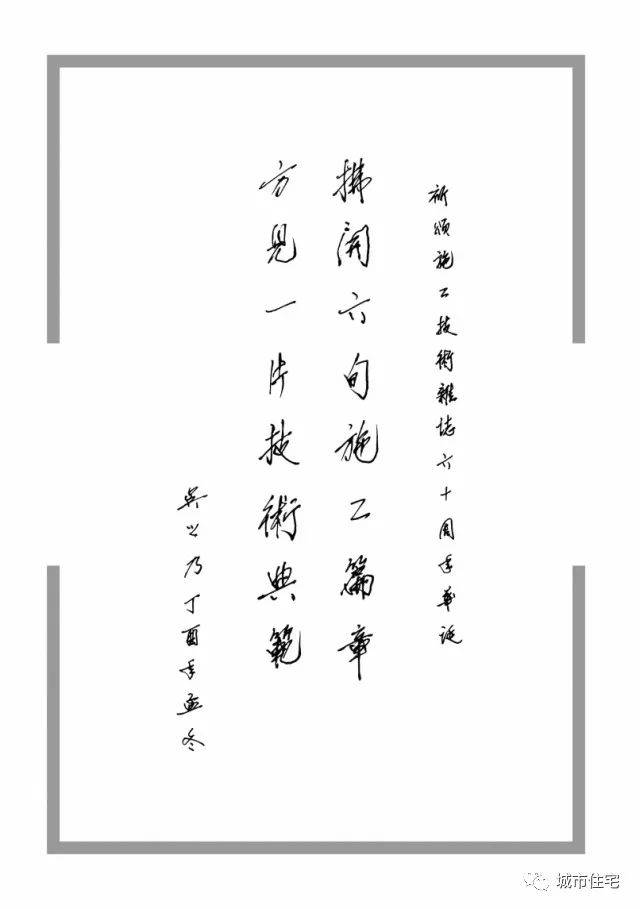 祈頌施工技術雜誌六十周年華誕
拂開六旬施工篇章
方見一片技術典範
吳之乃丁酉年孟冬
城市住宅